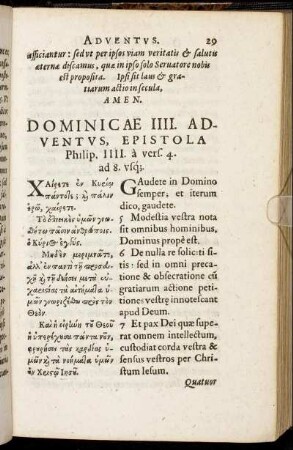 ADVENTVS. 29
afficiantur: sed vt per ipsos viam veritatis & salutis
æternæ discamus, quæ in ipso solo Seruatore nobis
est proposita. Ipsi sit laus & gra-
tiarum actio in secula,
AMEN.
DOMINICAE IIII. AD-
VENTVS, EPISTOLA
Philip. IIII. à vers. 4.
ad 8. vsq;.
ΧΑίρετε ἐν Κυρίῳ
πάντοτε· πάλιν
ἐρῶ, χαίρετε.
Τὸ ἐπιεικὲς ὑμῶν γνω-
θήτω πᾶσιν ἀνθρώποις.
ὁ Κύριος ἐγγύς.
Μηδὲν μεριμνᾶτε,
ἀλλ' ἐν παντὶ τῇ προσευχῇ
καὶ τῇ δεήσει μετὰ εὐ-
χαριστίας τὰ αἰτήματα
ὑμῶν γνωριζέσθω πρὸς τὸν
Θεόν.
Καὶ ἡ εἰρήνη τοῦ Θεοῦ
ἡ ὑπερέχουσα πάντα νοῦν,
φρουρήσει τὰς καρδίας ὑμῶν
καὶ τὰ νοήματα ὑμῶν
ἐν Χριστῷ Ἰησοῦ.
GAudete in Domino
semper, et iterum
dico, gaudete.
5 Modestia vestra nota
sit omnibus hominibus,
Dominus propè est.
6 De nulla re soliciti si-
tis: sed in omni preca-
tione & obsecratione cũ
gratiarum actione peti-
tiones vestræ innotescant
apud Deum.
7 Et pax Dei quæ supe-
rat omnem intellectum,
custodiat corda vestra &
sensus vestros per Chri-
stum Iesum.
Quatuor